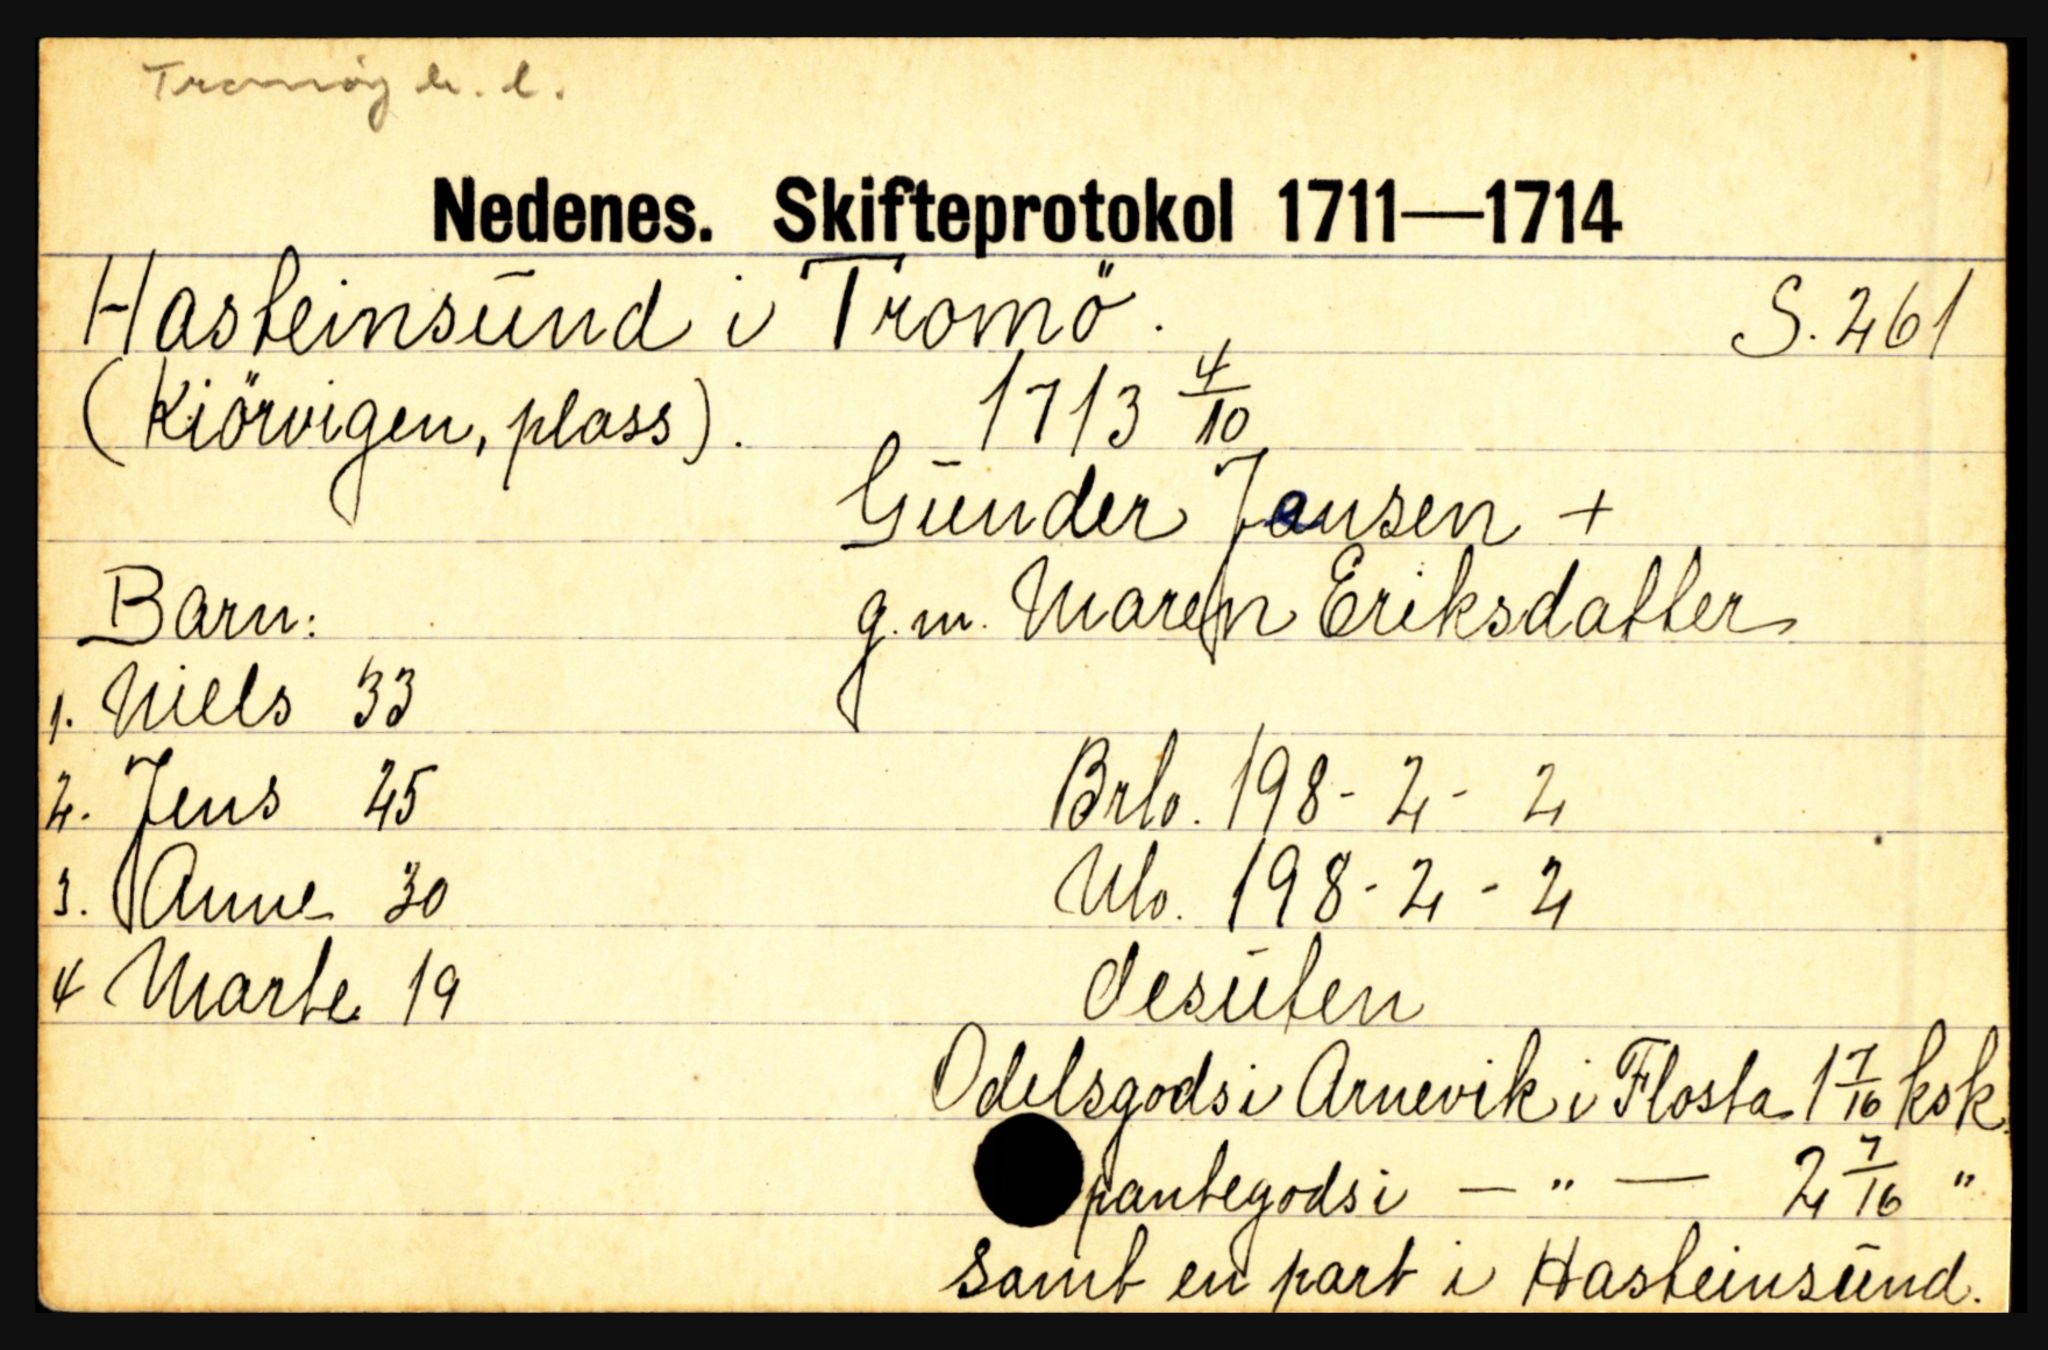 Tromöy h. l.
Nedenes. Skifteprotokol 1711—1714
Hasteinsund i Tromö. S. 261
(Kiörvigen, plass). 1713 4/10
Gunder Jensen +
Barn: g.m. Maren Eriksdatter
1. Niels 33
2. Jens 25 Brb. 198 - 2 - 2
3. Anne 30 Nb. 198 - 2 - 2
4 Marte 19 desuten
Odelsgods i Arnevik i Flosta 1 7/16 ksk.
pantegods i — " — 2 7/16 "
samt en part i Hasteinsund.